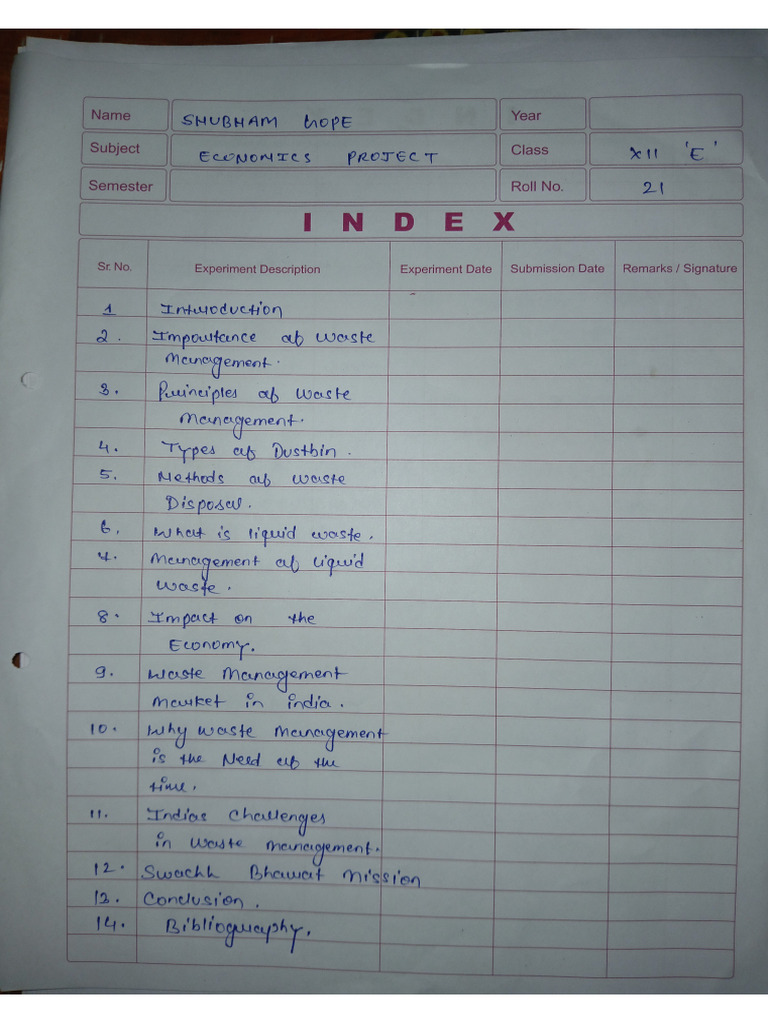 Name SHUBHAM GOPE Year
Subject ECONOMICS PROJECT Class XII 'E'
Semester Roll No. 21
INDEX
Sr. No. Experiment Description Experiment Date Submission Date Remarks / Signature
1 Introduction
2. Importance of Waste
Management.
3. Principles of Waste
Management.
4. Types of Dustbin.
5. Methods of Waste
Disposal.
6. What is liquid waste.
7. Management of liquid
waste.
8. Impact on the
Economy.
9. Waste Management
Market in india.
10. Why Waste Management
is the Need of the
time.
11. Indias Challenges
in Waste management.
12. Swachh Bharat Mission
13. Conclusion.
14. Bibliography.